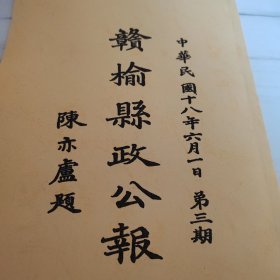 中華民國十八年六月一日 第三期
贛榆縣政公報
陳亦盧題